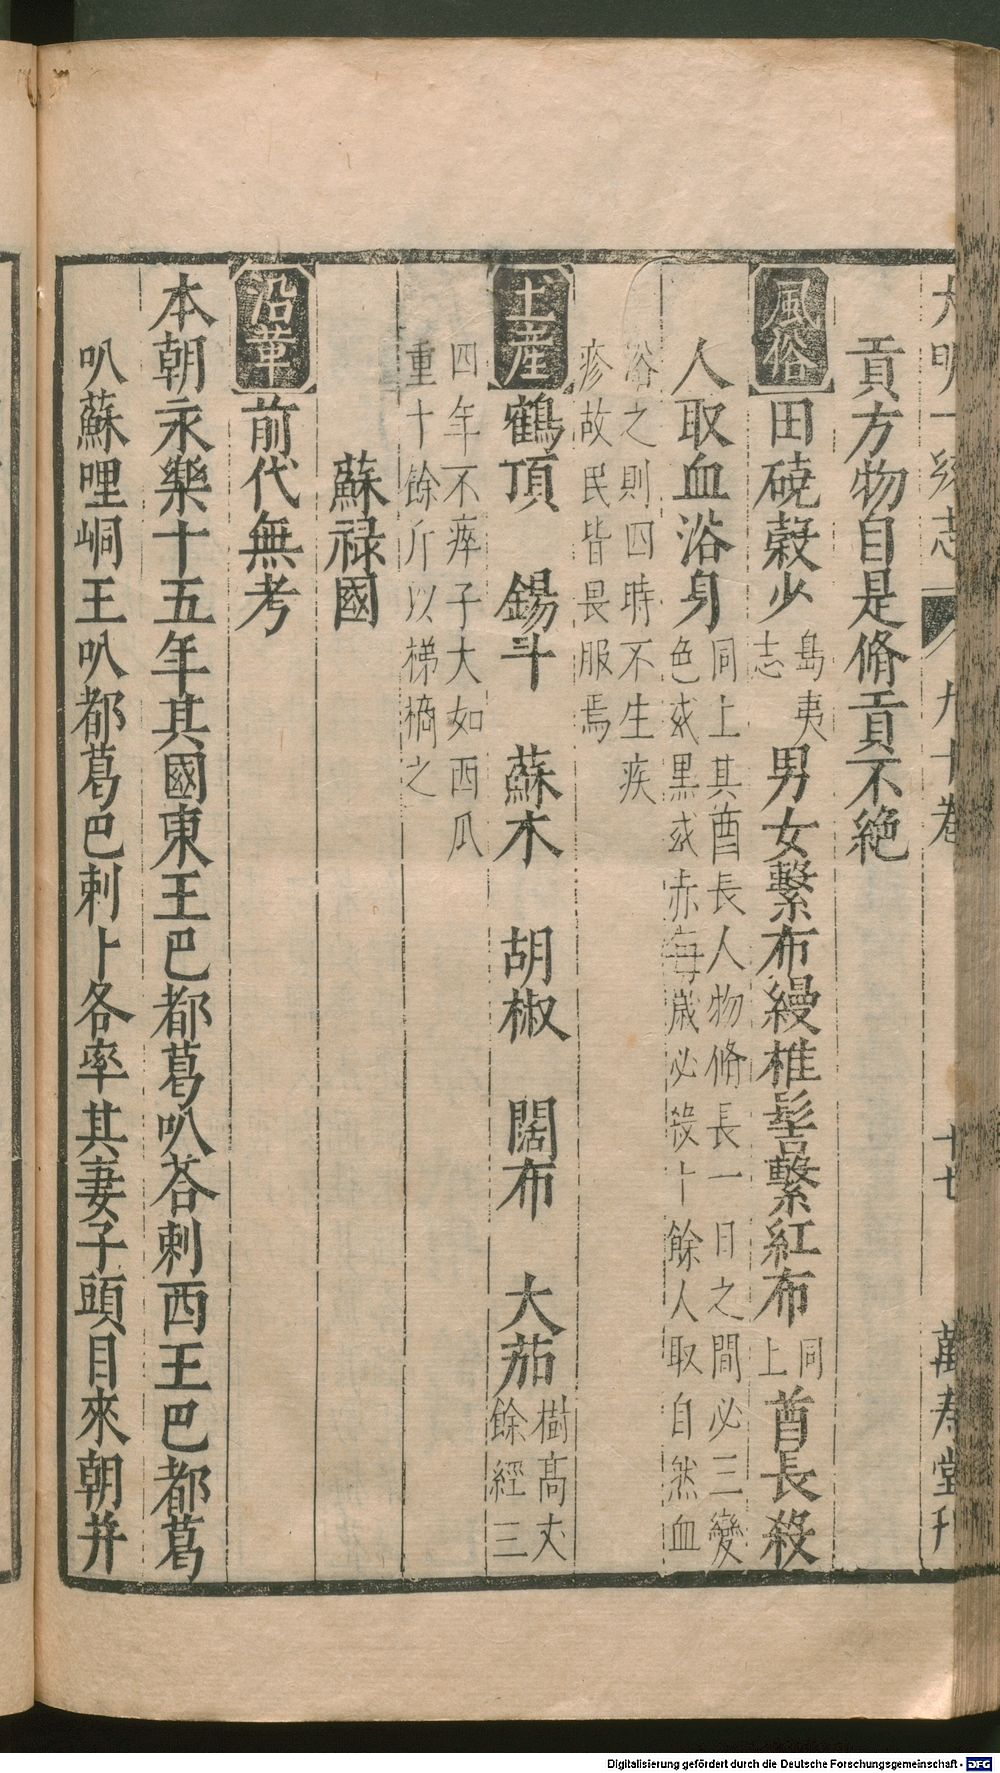 大明一統志 九十卷 十七 萬壽堂刊
貢方物自是脩貢不絶
風俗 田磽穀少 島夷志 男女繫布縵椎髻繫紅布 同上 酋長殺
人取血浴身 同上其酋長人物脩長一日之間必三變
色或黑或赤每歲必殺十餘人取自然血
浴之則四時不生疾
疹故民皆畏服焉
土産 鶴頂 錫斗 蘇木 胡椒 闊布 大茄 樹高丈
餘經三
四年不瘁子大如西瓜
重十餘斤以梯摘之
蘇祿國
沿革 前代無考
本朝永樂十五年其國東王巴都葛叭荅剌西王巴都葛
叭蘇哩峒王叭都葛巴剌卜各率其妻子頭目來朝并
Digitalisierung gefördert durch die Deutsche Forschungsgemeinschaft - DFG